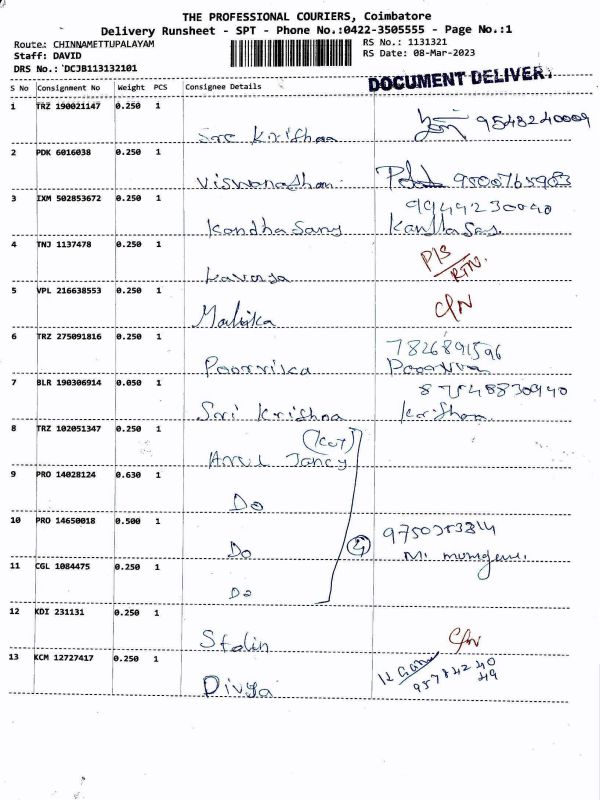 THE PROFESSIONAL COURIERS, Coimbatore
Delivery Runsheet - SPT - Phone No.:0422-3505555 - Page No.:1
Route: CHINNAMETTUPALAYAM RS No.: 1131321
Staff: DAVID RS Date: 08-Mar-2023
DRS No.: DCJB113132101
DOCUMENT DELIVERY
S No Consignment No Weight PCS Consignee Details
1 TRZ 190021147 0.250 1
Sre Krishna 9548240009
2 PDK 6016038 0.250 1
Viswanathan 9500765983
3 IXM 502853672 0.250 1
9944230040
Kandhasamy Kandhasamy
4 TNJ 1137478 0.250 1
P/S
RTN.
5 VPL 216638553 0.250 1
C/N
Mallika
6 TRZ 275091816 0.250 1
7826891596
Poorvika Poorvika
7 BLR 190306914 0.050 1
87548830940
Sri Krishna Krishna
8 TRZ 102051347 0.250 1
Jancy
9 PRO 14028124 0.630 1
Do
10 PRO 14650018 0.500 1
Do 4
11 CGL 1084475 0.250 1
Do
12 KDI 231131 0.250 1
Stalin C/N
13 KCM 12727417 0.250 1
95784240
49
Divya